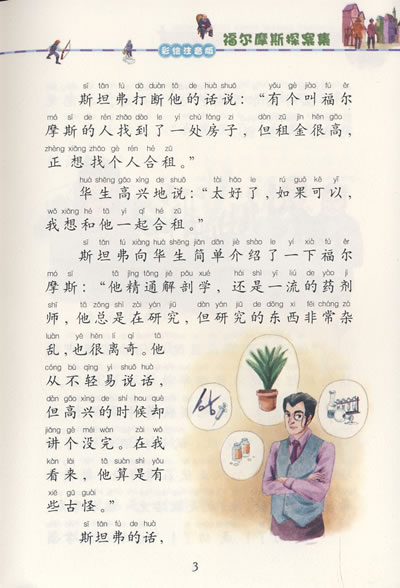 彩绘注音版
福尔摩斯探案集
sī tǎn fú dǎ duàn tā de huà shuō yǒu gè jiào fú ěr
斯坦弗打断他的话说：“有个叫福尔
mó sī de rén zhǎo dào le yí chù fáng zi dàn zū jīn hěn gāo
摩斯的人找到了一处房子，但租金很高，
zhèng xiǎng zhǎo gè rén hé zū
正想找个人合租。”
huá shēng gāo xìng de shuō tài hǎo le rú guǒ kě yǐ
华生高兴地说：“太好了，如果可以，
wǒ xiǎng hé tā yì qǐ hé zū
我想和他一起合租。”
sī tǎn fú xiàng huá shēng jiǎn dān jiè shào le yí xià fú ěr
斯坦弗向华生简单介绍了一下福尔
mó sī tā jīng tōng jiě pōu xué hái shì yī liú de yào jì
摩斯：“他精通解剖学，还是一流的药剂
shī tā zǒng shì zài yán jiū dàn yán jiū de dōng xi fēi cháng zá
师，他总是在研究，但研究的东西非常杂
luàn yě hěn lí qí tā
乱，也很离奇。他
cóng bù qīng yì shuō huà
从不轻易说话，
dàn gāo xìng de shí hou què
但高兴的时候却
jiǎng gè méi wán zài wǒ
讲个没完。在我
kàn lái tā suàn shì yǒu
看来，他算是有
xiē gǔ guài
些古怪。”
sī tǎn fú de huà
斯坦弗的话，
3